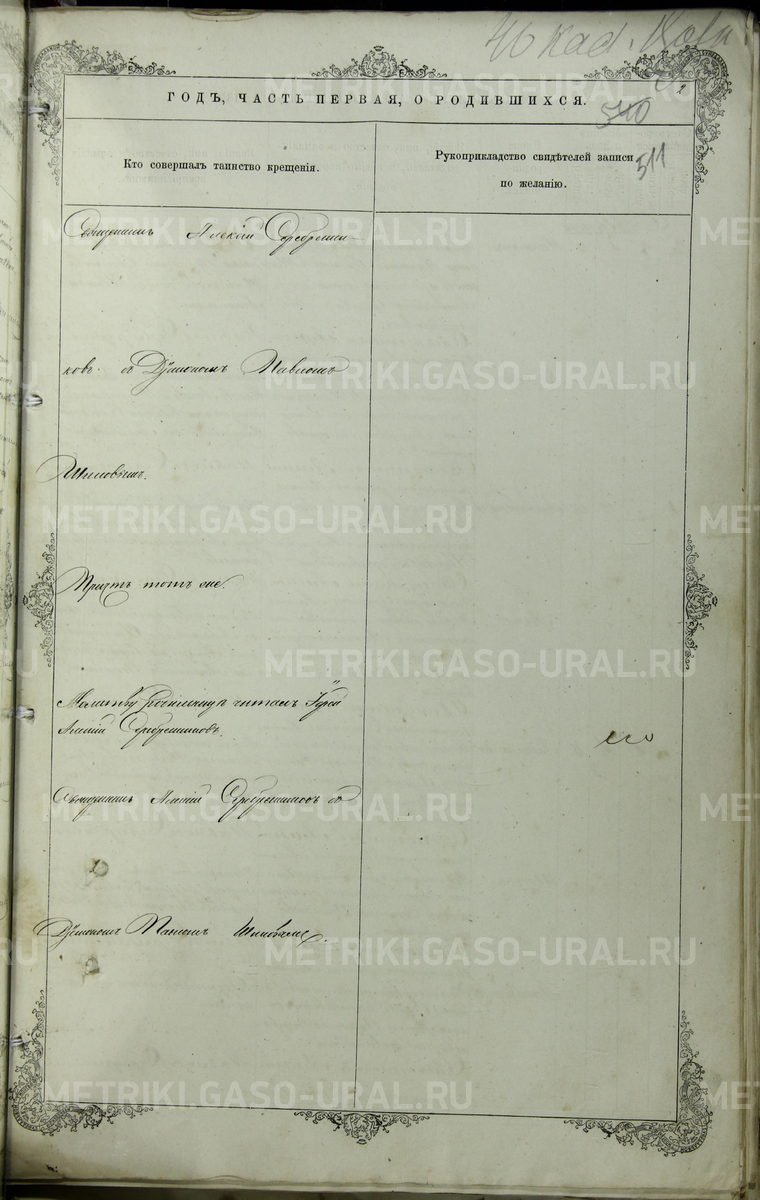 2
ГОДЪ, ЧАСТЬ ПЕРВАЯ, О РОДИВШИХСЯ.
540
511
Кто совершалъ таинство крещенія.
Рукоприкладство свидѣтелей записи
по желанію.
Священникъ Алексій Серебрени-
ковъ съ Діякономъ Павломъ
Шиловымъ.
Причтъ тотъ же.
Молитву родильницѣ читалъ Іерей
Алексій Серебрениковъ.
Священникъ Алексій Серебрениковъ съ
Діякономъ Павломъ Шиловымъ.
METRIKI.GASO-URAL.RU